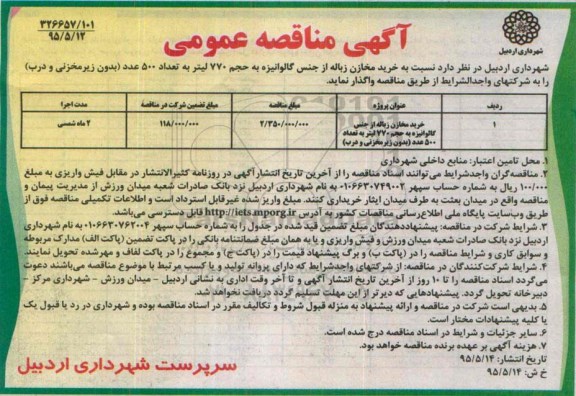 ۳۲۶۶۵۷/۱۰۱
۹۵/۵/۱۲
آگهی مناقصه عمومی
شهرداری اردبیل
شهرداری اردبیل در نظر دارد نسبت به خرید مخازن زباله از جنس گالوانیزه به حجم ۷۷۰ لیتر به تعداد ۵۰۰ عدد (بدون زیرمخزنی و درب)
را به شرکتهای واجدالشرایط از طریق مناقصه واگذار نماید.
ردیف عنوان پروژه مبلغ مناقصه مبلغ تضمین شرکت در مناقصه مدت اجرا
۱ خرید مخازن زباله از جنس گالوانیزه به حجم ۷۷۰ لیتر به تعداد ۵۰۰ عدد (بدون زیرمخزنی و درب) ۲/۳۵۰/۰۰۰/۰۰۰ ۱۱۸/۰۰۰/۰۰۰ ۲ ماه شمسی
۱. محل تامین اعتبار: منابع داخلی شهرداری
۲. مناقصه‌گران واجدشرایط می توانند اسناد مناقصه را از آخرین تاریخ انتشار آگهی در روزنامه کثیرالانتشار در مقابل فیش واریزی به مبلغ
۱۰۰/۰۰۰ ریال به شماره حساب سپهر ۰۱۰۶۶۳۰۷۴۹۰۰۲ به نام شهرداری اردبیل نزد بانک صادرات شعبه میدان ورزش از مدیریت پیمان و
مناقصه واقع در میدان بعثت به طرف میدان ایثار خریداری کنند. مبلغ واریز شده غیرقابل استرداد است و اطلاعات تکمیلی مناقصه فوق از
طریق وب‌سایت پایگاه ملی اطلاع‌رسانی مناقصات کشور به آدرس http://iets.mporg.ir قابل دسترسی می‌باشد.
۳. شرایط شرکت در مناقصه: پیشنهاددهندگان مبلغ تضمین قید شده در جدول را به شماره حساب سپهر ۰۱۰۶۶۳۰۷۶۲۰۰۴ به نام شهرداری
اردبیل نزد بانک صادرات شعبه میدان ورزش و فیش واریزی و یا به همان مبلغ ضمانتنامه بانکی را در پاکت تضمین (پاکت الف) مدارک مربوطه
و سوابق کاری و شرایط مناقصه را در (پاکت ب) و برگ پیشنهاد قیمت را در (پاکت ج) و مجموع را در پاکت لفاف و مهرشده تحویل نمایند.
۴. شرایط شرکت‌کنندگان در مناقصه: از شرکتهای واجدشرایط که دارای پروانه تولید و یا کسب مرتبط با موضوع مناقصه می‌باشند دعوت
می‌گردد اسناد مناقصه را تا ۱۰ روز از آخرین تاریخ انتشار آگهی و تا آخر وقت اداری به نشانی اردبیل - میدان ورزش - شهرداری مرکز -
دبیرخانه تحویل گردد. پیشنهادهایی که دیرتر از این مهلت تسلیم گردد دریافت نخواهد شد.
۵. بدیهی است شرکت در مناقصه و ارائه پیشنهاد به منزله قبول شروط و تکالیف مقرر در اسناد مناقصه بوده و شهرداری در رد یا قبول یک
یا کلیه پیشنهادات مختار است.
۶. سایر جزئیات و شرایط در اسناد مناقصه درج شده است.
۷. هزینه آگهی بر عهده برنده مناقصه خواهد بود.
تاریخ انتشار: ۹۵/۵/۱۴
خ ش: ۹۵/۵/۱۴
سرپرست شهرداری اردبیل